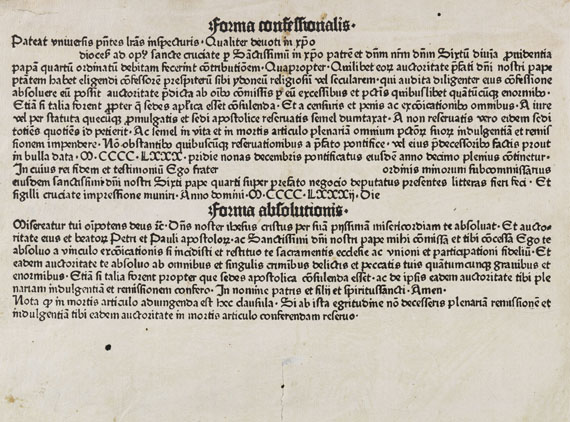 Forma confessionalis·
Pateat vniuersis p̄ntes lr̄as inspecturis · Qualiter deuoti in xp̄o
dioceẜ ad opꝰ sancte cruciate ꝑ Sanctissimū in xp̄o patrē et dn̄m nr̄m dn̄m Sixtū diuīa ꝓuidentia
papā quartū ordinatū debitam fecerint cōtributiōem · Quapropter · Quilibet eoꝝ auctoritate p̄fati dn̄i nostri pape
ptātem habet eligendi cōfessorē presbiterū sibi ydoneū religiosū vel secularem · qui audita diligenter eius cōfessione
absoluere eū possit auctoritate p̄dicta ab oībꝰ cōmissis ꝑ eū excessibus et pctīs quibuslibet quātūcūqꝫ enormibꝰ ·
Etiā si talia forent ꝓpter q̄ sedes apl'ica esset cōsulenda · Et a censuris et penis ac excōicationibꝰ omnibus · A iure
vel per statuta quecūqꝫ ꝓmulgatis et sedi apostolice reseruatis semel dumtaxat · A non reseruatis vero eidem sedi
totiēs quotiēs id petierit · Ac semel in vita et in mortis articulo plenariā omnium pctōꝝ suoꝝ indulgentiā et remis
sionem impendere · Nō obstantibꝰ quibuscūqꝫ reseruationibus a p̄fato pontifice · vel eius p̄decessoribꝰ factis prout
in bulla data · M · CCCC · LXXX · pridie nonas decembris pontificatus eiusdē anno decimo plenius cōtinetur ·
In cuius rei fidem et testimoniū Ego frater ordinis minorum subcommissarius
eiusdem sanctissimi dn̄i nostri Sixti pape quarti super prefato negocio deputatus presentes litteras fieri feci · Et
sigilli cruciate impressione muniri · Anno domini · M · CCCC · LXXXij · Die
Forma absolutionis·
Misereatur tui oīpotens deus ⁊c̄ · Dn̄s noster ihesus cristus per suā pijssimā misericordiam te absoluat · Et aucto-
ritate eius et beatoꝝ Petri et Pauli apostoloꝝ · ac Sanctissimi dn̄i nostri pape mihi cōmissa et tibi cōcessa Ego te
absoluo a vinculo excōicationis si incidisti et restituo te sacramentis ecclesie ac vnioni et participationi fideliū · Et
eadem auctoritate te absoluo ab omnibus et singulis crimībus delictis et peccatis tuis quātumcūqꝫ grauibus et
enormibus · Etiā si talia forent propter que sedes apostolica cōsulenda esset · ac de ip̄sis eadem auctoritate tibi ple
nariam indulgentiā et remissionem confero · In nomine patris et filij et spiritussancti · Amen ·
Nota ꝙ in mortis articulo adiungenda est hec clausula · Si ab ista egritudine nō decesseris plenariā remissionē et
indulgentiā tibi eadem auctoritate in mortis articulo conferendam reseruo ·